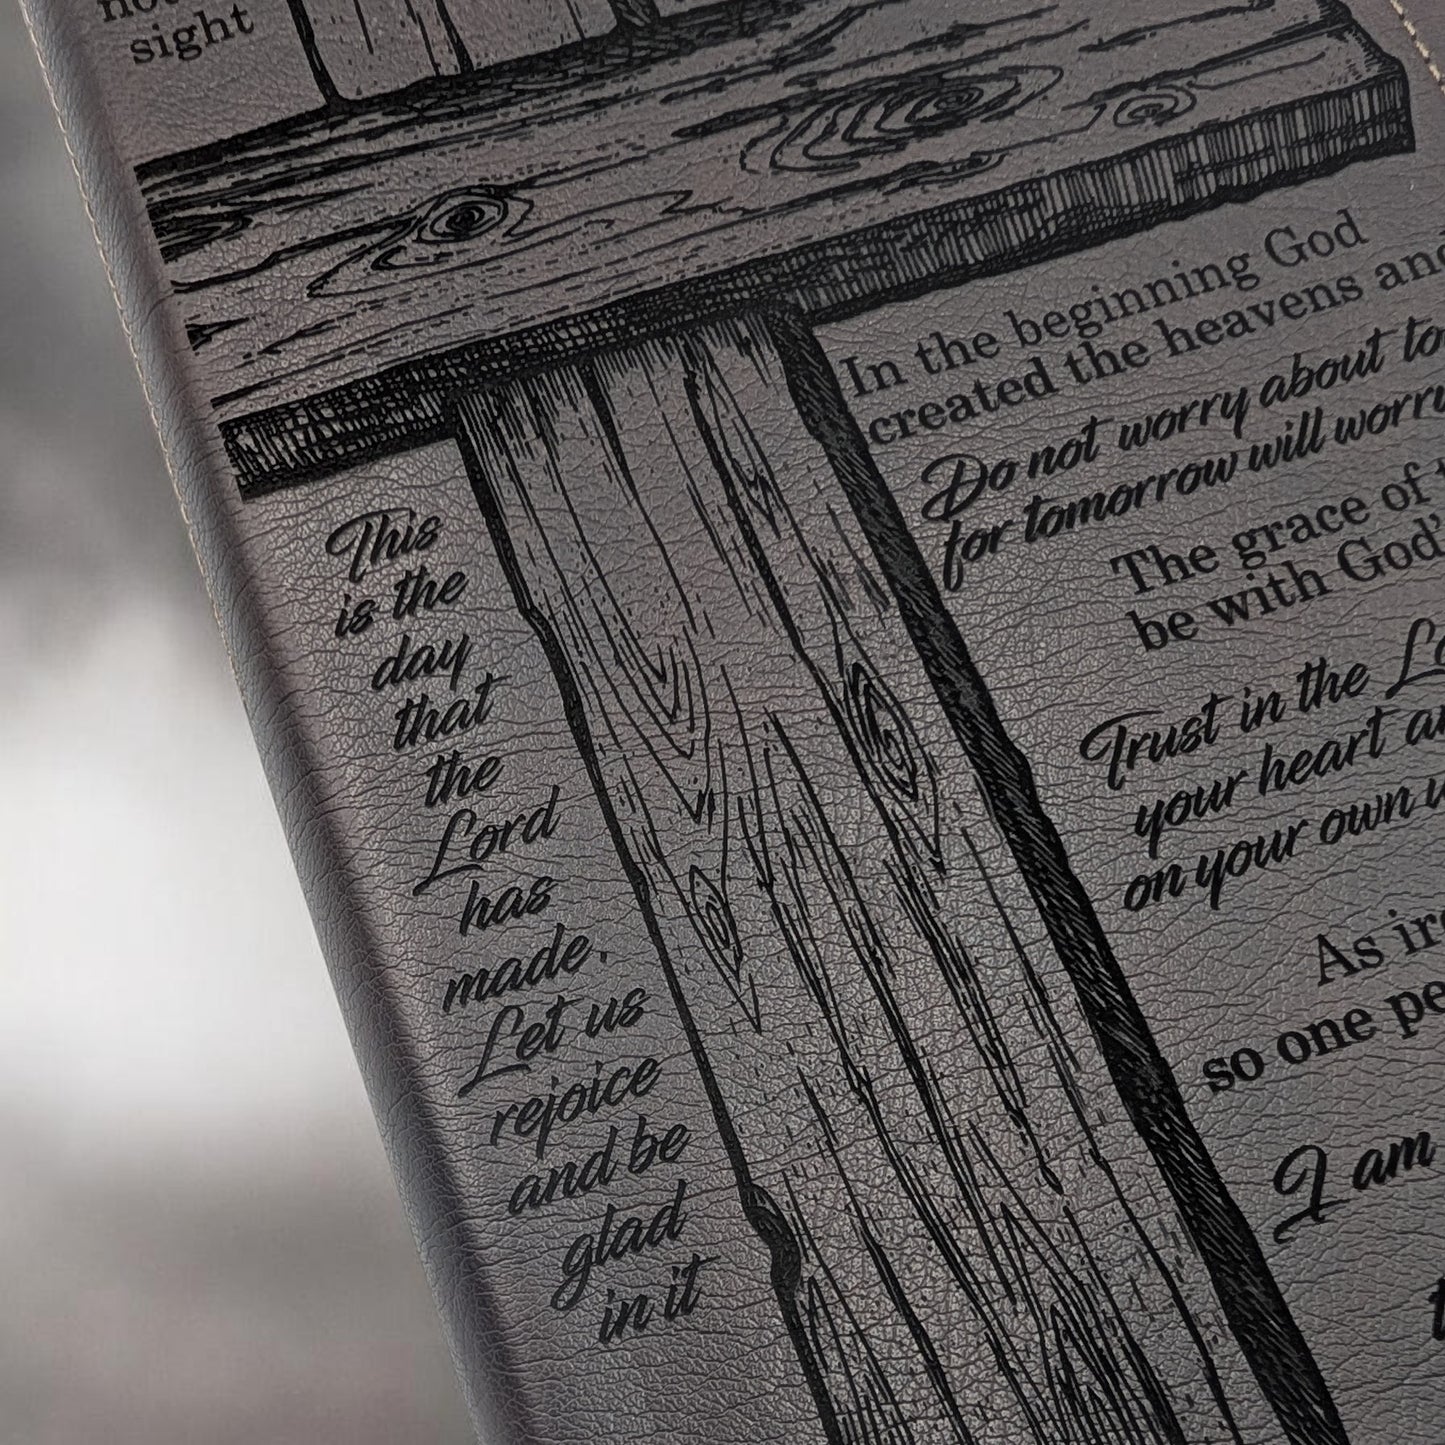 sight
This
is the
day
that
the
Lord
has
made.
Let us
rejoice
and be
glad
in it
In the beginning God
created the heavens and
Do not worry about
for tomorrow will worry
The grace of
be with God's
Trust in the
your heart
on your own
As
so one
I am